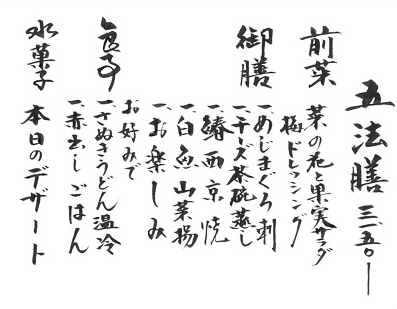 五法膳 三、五〇〇ー
前菜
菜の花と果実サラダ
梅ドレッシング
御膳
一、めじまぐろ刺
一、チーズ茶碗蒸し
一、鰆西京焼
一、白魚山菜揚
一、お楽しみ
食事
お好みで
一、さぬきうどん温冷
一、赤出しごはん
水菓子
本日のデザート